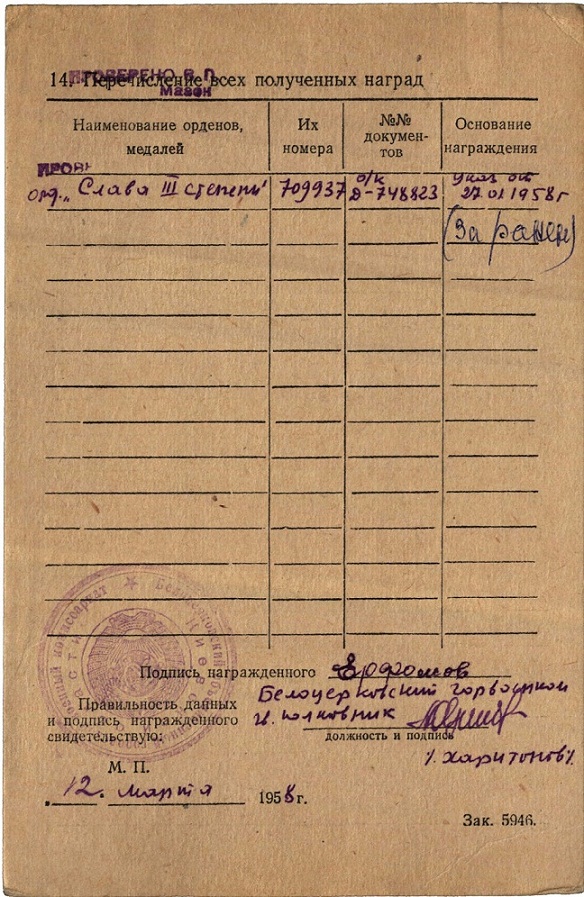 ПРОВЕРЕНО В.П.
Мазен
14. Перечисление всех полученных наград
Наименование орденов, медалей
Их номера
№№ документов
Основание награждения
ПРОВ
орд. „Слава III степени"
709937
о/к Д-748823
указ от 27.01.1958г
(За ранен)
Подпись награжденного
Белоцерковский горвоенком
Правильность данных
и подпись награжденного
свидетельствую:
п. полковник
должность и подпись
М. П.
/. Харитонов/.
12. марта 1958 г.
Зак. 5946.